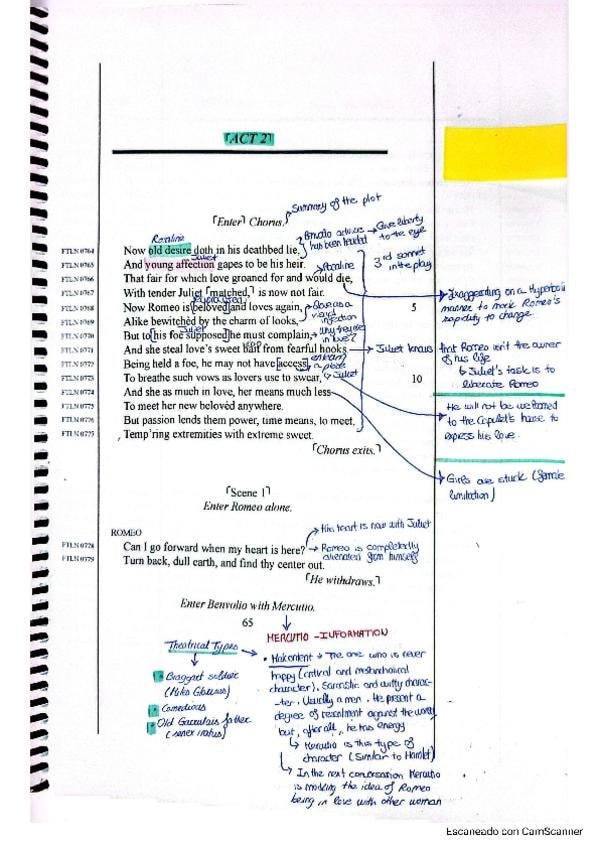 ACT 2
Summary of the plot
Enter Chorus.
Benvolio advice has been heeded → Give liberty to the eye
Rosaline
FTLN 0764 Now old desire doth in his deathbed lie,
Juliet
FTLN 0765 And young affection gapes to be his heir.
3rd sonnet in the play
FTLN 0766 That fair for which love groaned for and would die,
Rosaline
FTLN 0767 With tender Juliet matched, is now not fair.
FTLN 0768 Now Romeo is beloved and loves again, 5
FTLN 0769 Alike bewitched by the charm of looks,
Juliet
FTLN 0770 But to his foe supposed he must complain,
FTLN 0771 And she steal love's sweet bait from fearful hooks
FTLN 0772 Being held a foe, he may not have access
FTLN 0773 To breathe such vows as lovers use to swear, 10
Juliet
FTLN 0774 And she as much in love, her means much less
FTLN 0775 To meet her new belovèd anywhere.
But passion lends them power, time means, to meet,
Temp'ring extremities with extreme sweet.
Chorus exits.
Exaggerating on a Hyperbolic
manner to mock Romeo's
rapidity to change.
Juliet knows that Romeo isn't the owner
of his life
↳ Juliet's task is to
liberate Romeo
He will not be welcomed
to the Capulet's house to
express his love.
Girls are stuck
Scene 1
Enter Romeo alone.
ROMEO
His heart is now with Juliet
FTLN 0778 Can I go forward when my heart is here?
→ Romeo is completedly
alienated from himself
FTLN 0779 Turn back, dull earth, and find thy center out.
He withdraws.
Enter Benvolio with Mercutio.
65
Theatrical Types
Braggart soldier
Comedious
Old Garrulous father
MERCUTIO - INFORMATION
• Malcontent → The one who is never
happy (critical and melancholical
character). Sarcastic and witty charac-
ter. Usually a men. He present a
degree of resentment against the world
but, after all, he has energy
↳ Mercutio is this type of
character (Similar to Hamlet)
↳ In the next conversation Mercutio
is mocking the idea of Romeo
being in love with other woman
Escaneado con CamScanner